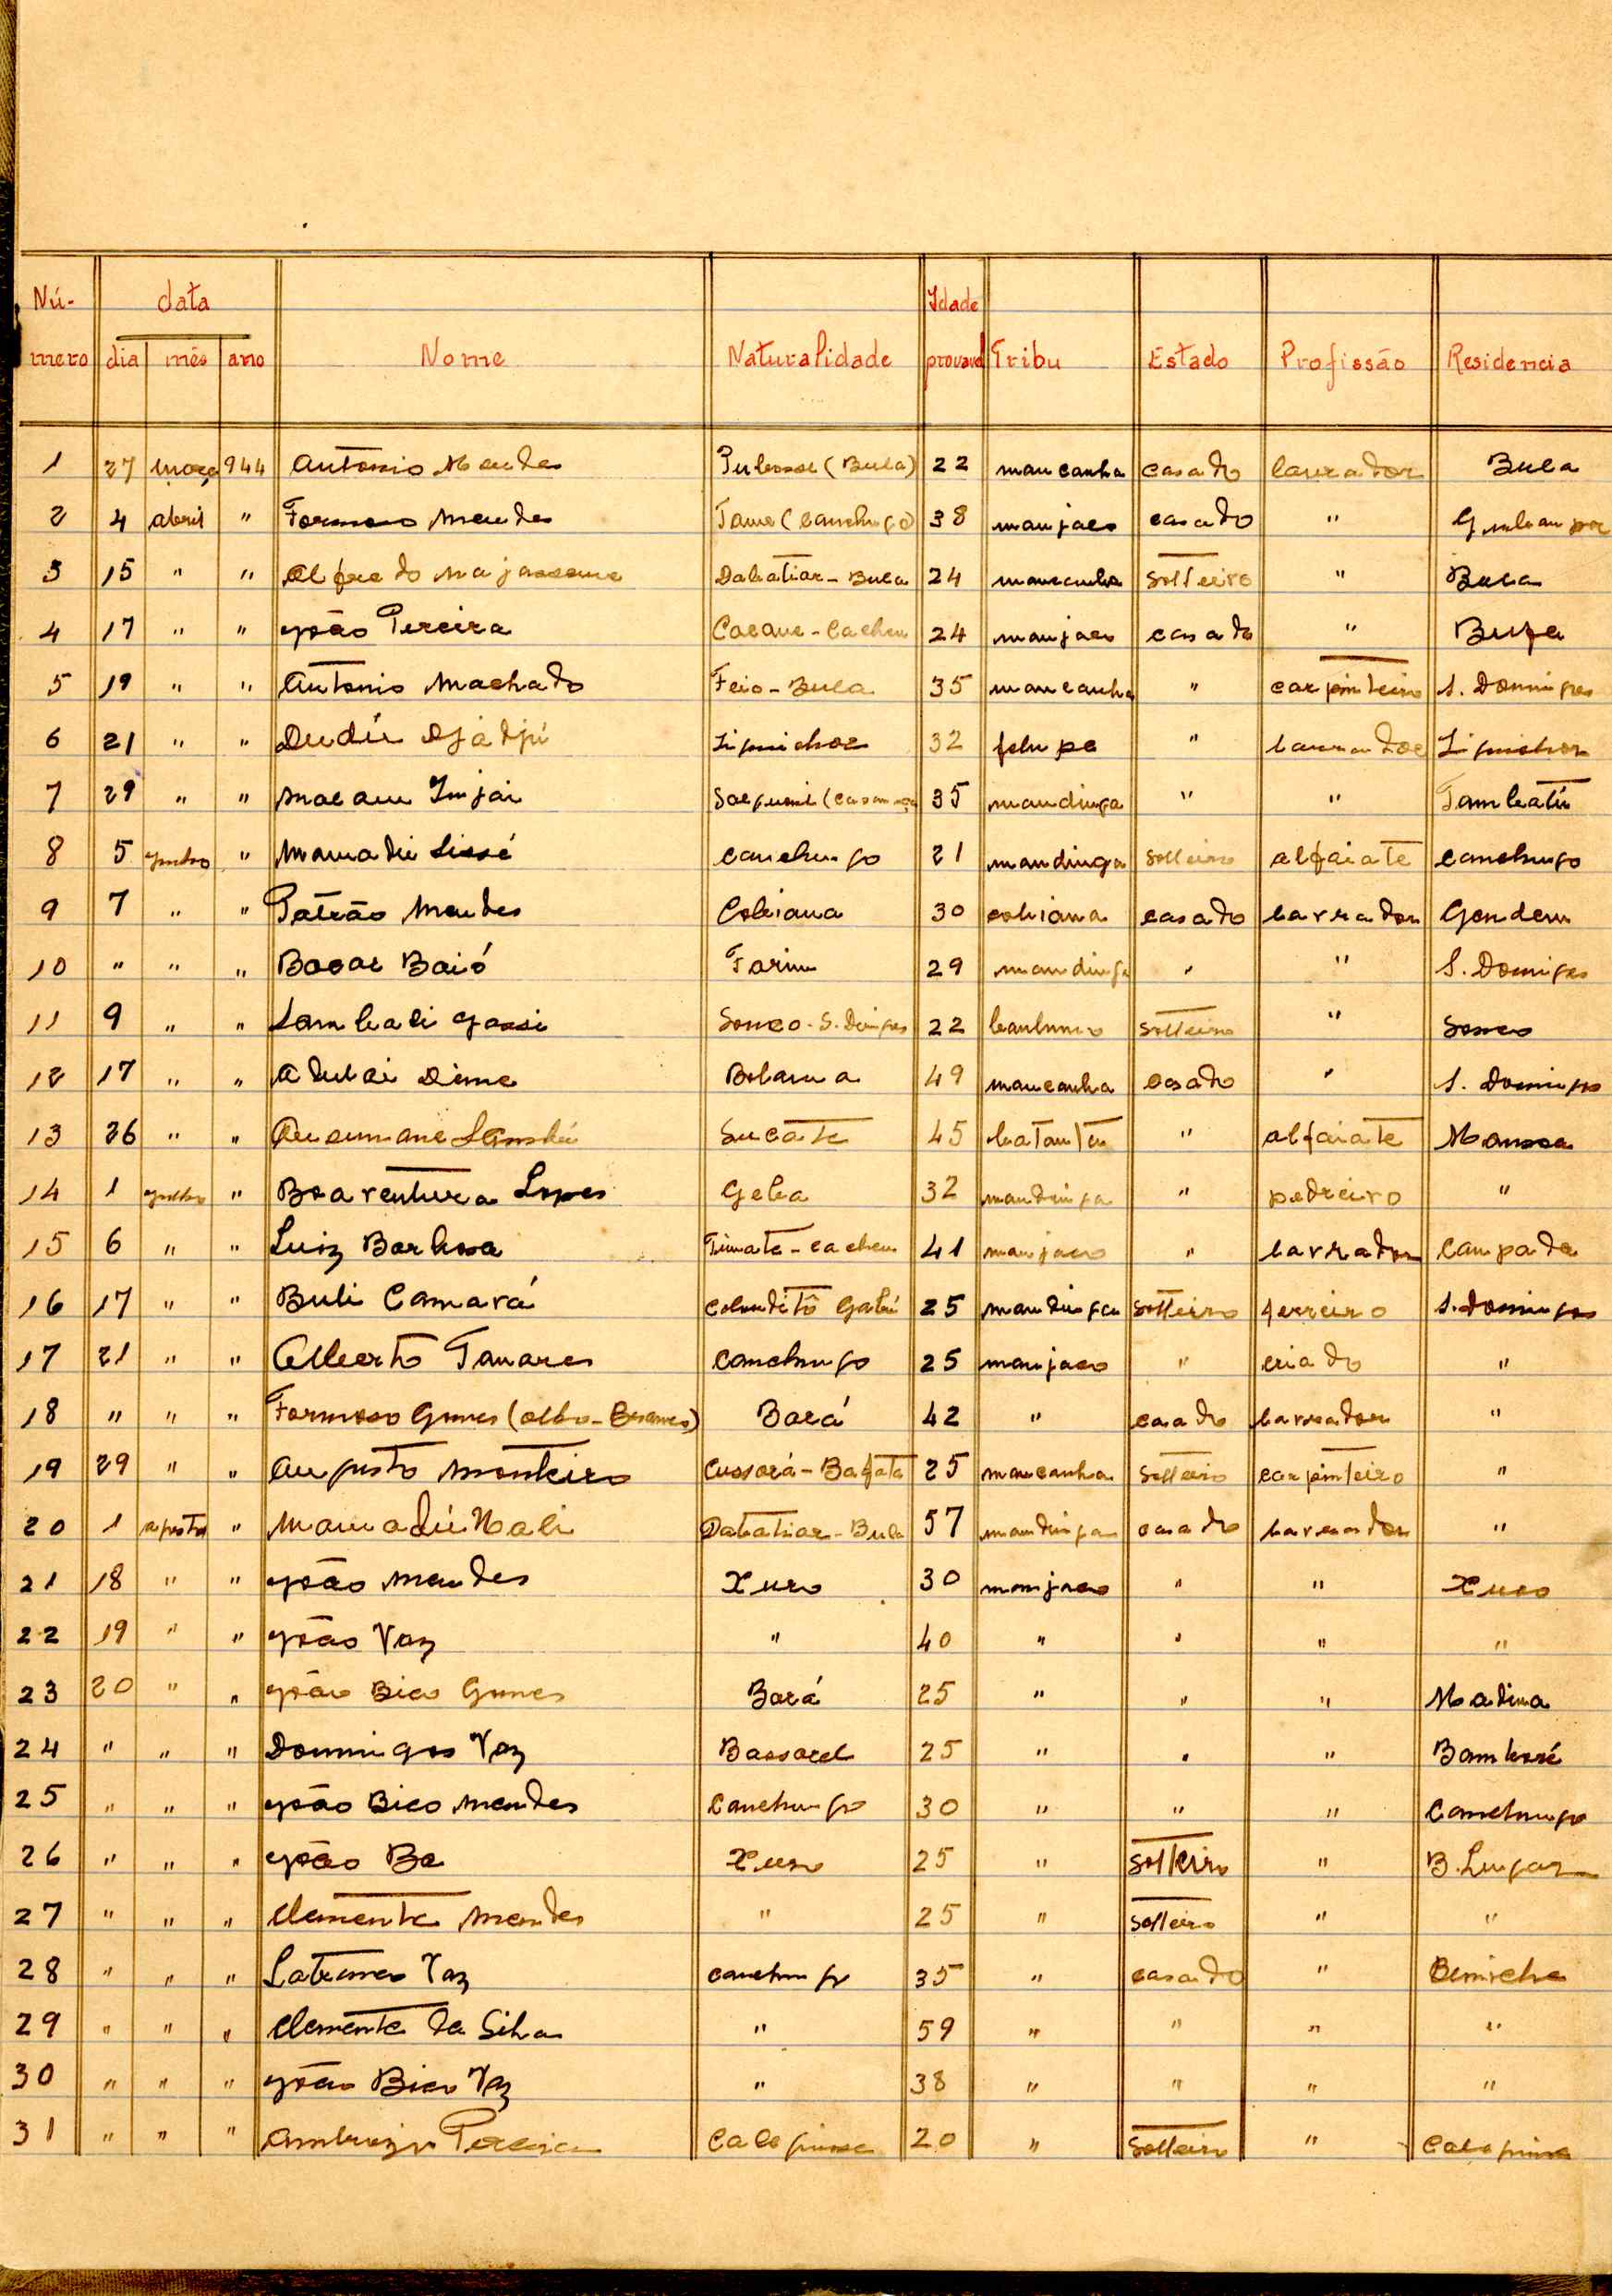 Nú- data Idade
mero dia mês ano Nome Naturalidade provavel Tribu Estado Profissão Residencia
1 27 março 944 Antonio Mendes (Bula) 22 mancanha casado lavrador Bula
2 4 abril " Formoso Mendes Tame (Canchugo) 38 manjaco casado "
3 15 " " Alfredo Dabatiar - Bula 24 mancanha solteiro " Bula
4 17 " " João Pereira Cacane - Cacheu 24 manjaco casado "
5 19 " " Antonio Machado Feio - Bula 35 mancanha " carpinteiro S. Domingos
6 21 " " Dudú Djádjú 32 felupe " lavrador
7 29 " " Injai 35 mandinga " " Tambatú
8 5 junho " Mamadú Sissé Canchungo 21 mandinga solteiro alfaiate Canchungo
9 7 " " Patrão Mendes Cobiana 30 cobiana casado lavrador Gendem
10 " " " Bacar Baió Farim 29 mandinga " " S. Domingos
11 9 " " Sonco - S. Domingos 22 banhumo solteiro " Sonco
12 17 " " Adulai Dême Bolama 49 mancanha casado " S. Domingos
13 26 " " Sucate 45 " alfaiate Mansoa
14 1 julho " Boaventura Lopes Geba 32 mandinga " pedreiro "
15 6 " " Luiz Barbosa Timate - Cacheu 41 manjaco " lavrador Campada
16 17 " " Buli Camará Gabú 25 mandinga solteiro ferreiro S. Domingos
17 21 " " Alberto Tavares Canchungo 25 manjaco " criado "
18 " " " Formoso Gomes Bará 42 " casado lavrador "
19 29 " " Augusto Monteiro Cussará - Bafatá 25 mancanha solteiro carpinteiro "
20 1 agosto " Mamadú Nali Dabatiar - Bula 57 mandinga casado lavrador "
21 18 " " João Mendes Xuro 30 manjaco " " Xuro
22 19 " " João Vaz " 40 " " " "
23 20 " " João Bico Gomes Bará 25 " " " Madina
24 " " " Domingos Vaz Bassarel 25 " " " Bamboré
25 " " " João Bico Mendes Canchungo 30 " " " Canchungo
26 " " " João Ba Xuro 25 " solteiro " B. Lugar
27 " " " Clemente Mendes " 25 " solteiro " "
28 " " " Vaz Canchungo 35 " casado "
29 " " " Clemente da Silva " 59 " " " "
30 " " " João Bico Vaz " 38 " " " "
31 " " " Ambrozio Pereira 20 " solteiro "